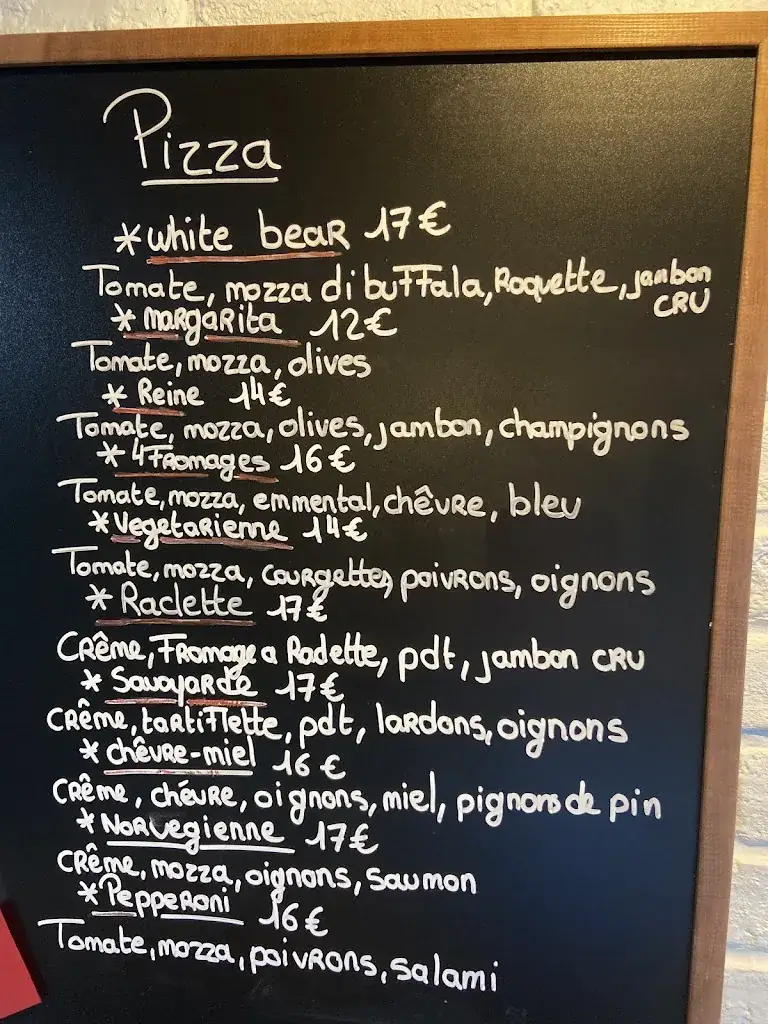 Pizza
* White bear 17€
Tomate, mozza di buffala, Roquette, jambon
CRU
* Margarita 12€
Tomate, mozza, olives
* Reine 14€
Tomate, mozza, olives, jambon, champignons
* 4 Fromages 16€
Tomate, mozza, emmental, chêvre, bleu
* Vegetarienne 14€
Tomate, mozza, courgettes, poivrons, oignons
* Raclette 17€
Crême, Fromage a Raclette, pdt, jambon CRU
* Savoyarde 17€
Crême, tartiflette, pdt, lardons, oignons
* chêvre-miel 16€
Crême, chévre, oignons, miel, pignons de pin
* Norvegienne 17€
Crême, mozza, oignons, saumon
* Pepperoni 16€
Tomate, mozza, poivrons, salami